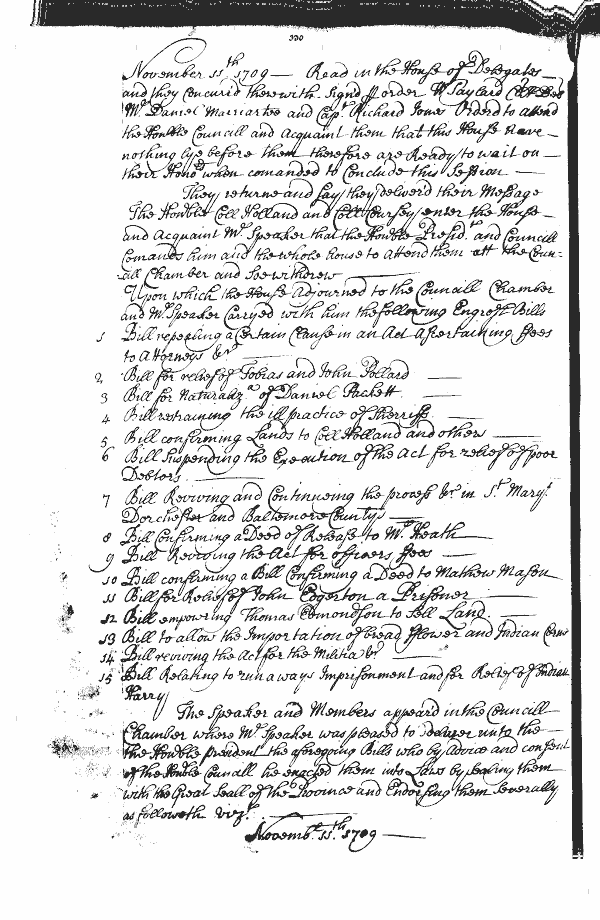 330
November 11th 1709 — Read in the House of Delegates
and they Concurd therewith. Signd p order W Taylard Cl: H: Del
Mr. Daniel Marriartee and Capt. Richard Jones Orderd to attend
the Honble Councill and Acquaint them that this House have
nothing lye before them therefore are Ready to wait on
their Honrs when comanded to Conclude this Session
They returne and Say they deliverd their Message
The Honble Coll Holland and Coll Coursey enter the House
and Acquaint Mr. Speaker that the Honble Presidt. and Councill
Comands him and the whole house to Attend them att the Coun-
cill Chamber and Soe withdrew
Upon which the House Adjourned to the Councill Chamber
and Mr. Speaker Carryed with him the following Engrost Bills
1 Bill repealing a Certain Clause in an Act Ascertaining ffees
to Attorneys &c
2 Bill for relief of Tobias and John Pollard
3 Bill for Naturaliza. of Daniel Packett
4 Bill restraining the ill practice of Sherriffs
5 Bill confirming Lands to Coll Holland and others
6 Bill Suspending the Execution of the Act for relief of poor
Debtors
7 Bill Reviving and Continueing the process &c in St. Marys
Dorchester and Baltemore County
8 Bill Confirming a Deed of Release to Mr. Heath
9 Bill Reviving the Act for officers ffees
10 Bill confirming a Bill Confirming a Deed to Mathew Mason
11 Bill for Relief of John Edgerton a Prisoner
12 Bill empowring Thomas Edmondson to Sell Land
13 Bill to allow the Importation of bread fflower and Indian Corne
14 Bill reviving the Act for the Militia &c
15 Bill Relating to run aways Imprisonment and for Relief of Indian
Harry
The Speaker and Members appeard in the Councill
Chamber where Mr. Speaker was pleased to deliver unto the
the Honble president the aforegoing Bills who by Advice and consent
of the Honble Councill he enacted them into Laws by Sealing them
with the Great Seall of the Province and Endorsing them Severally
as followeth vizt.
Novembr. 11th 1709